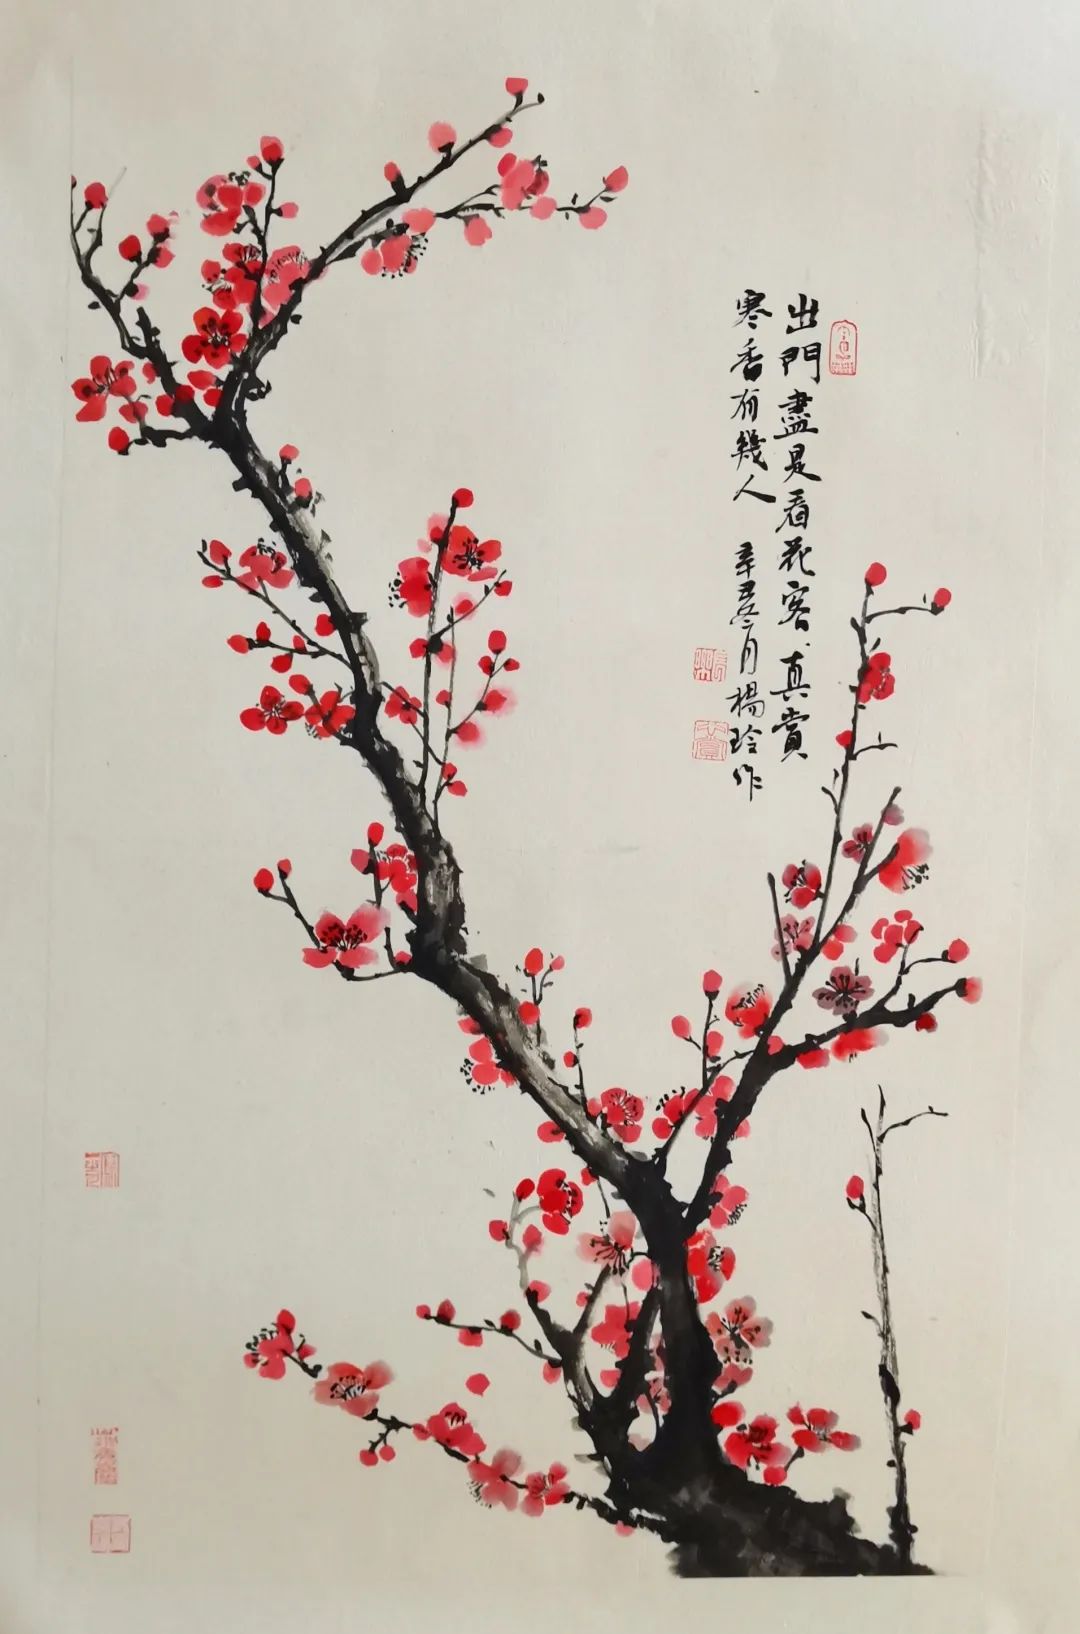 出門盡是看花客、真賞
寒香有幾人 辛丑冬月楊玲作